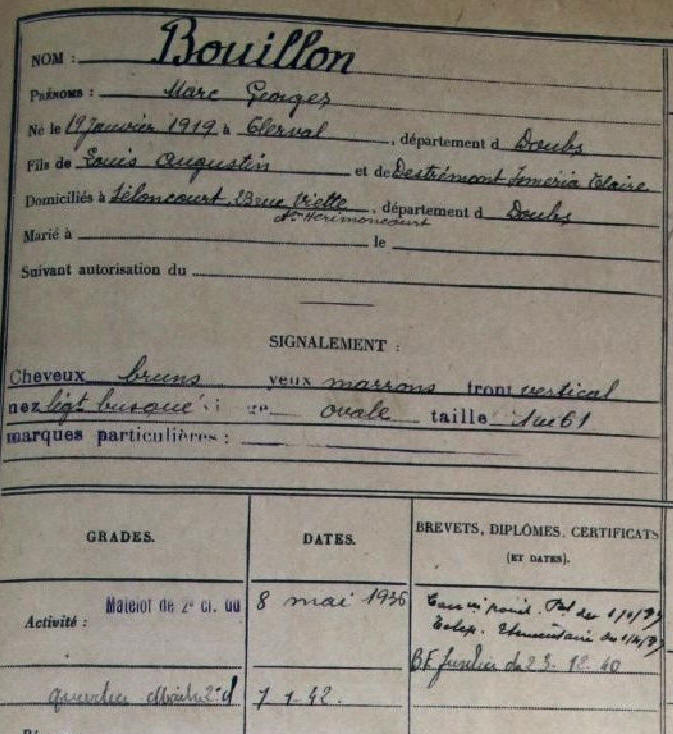 NOM : Bouillon
PRÉNOMS : Marc Georges
Né le 19 Janvier 1919 à Clerval, département d Doubs
Fils de Louis Augustin et de Destrémont Claire
Domiciliés à Seloncourt, rue Viette, département d Doubs
Hérimoncourt
Marié à le
Suivant autorisation du
SIGNALEMENT :
Cheveux bruns yeux marrons front vertical
nez légt busqué ovale taille 1m61
marques particulières :
GRADES. DATES. BREVETS, DIPLÔMES, CERTIFICATS
(ET DATES).
Activité : Matelot de 2e cl. du 8 mai 1936
B.F. fusilier du 23.12.40
quartier Maître 2e cl 1.42.